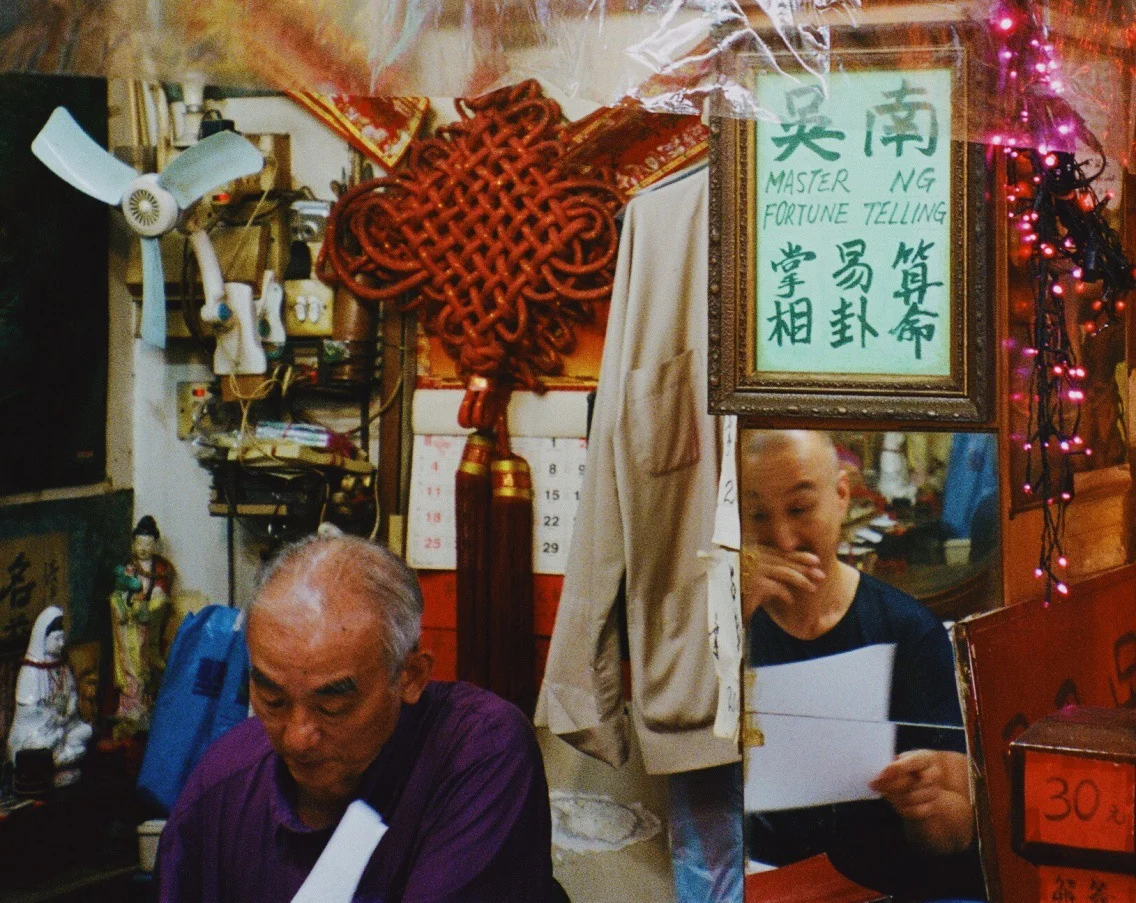 吳 南
MASTER NG
FORTUNE TELLING
掌相
易卦
算命
1
4 8
11 15
18 22
25 29
名
30元